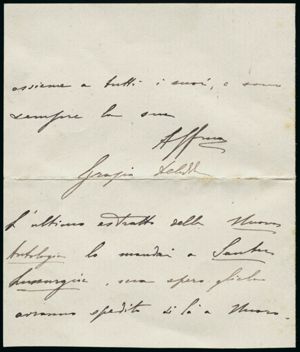 assieme a tutti i suoi, e sono
sempre la sua
Aff.ma
Grazia Deledda
L'ultimo estratto della Nuova
Antologia lo mandai a Santu
Lussurgiu, ma spero glielo
avranno spedito di là a Nuoro.